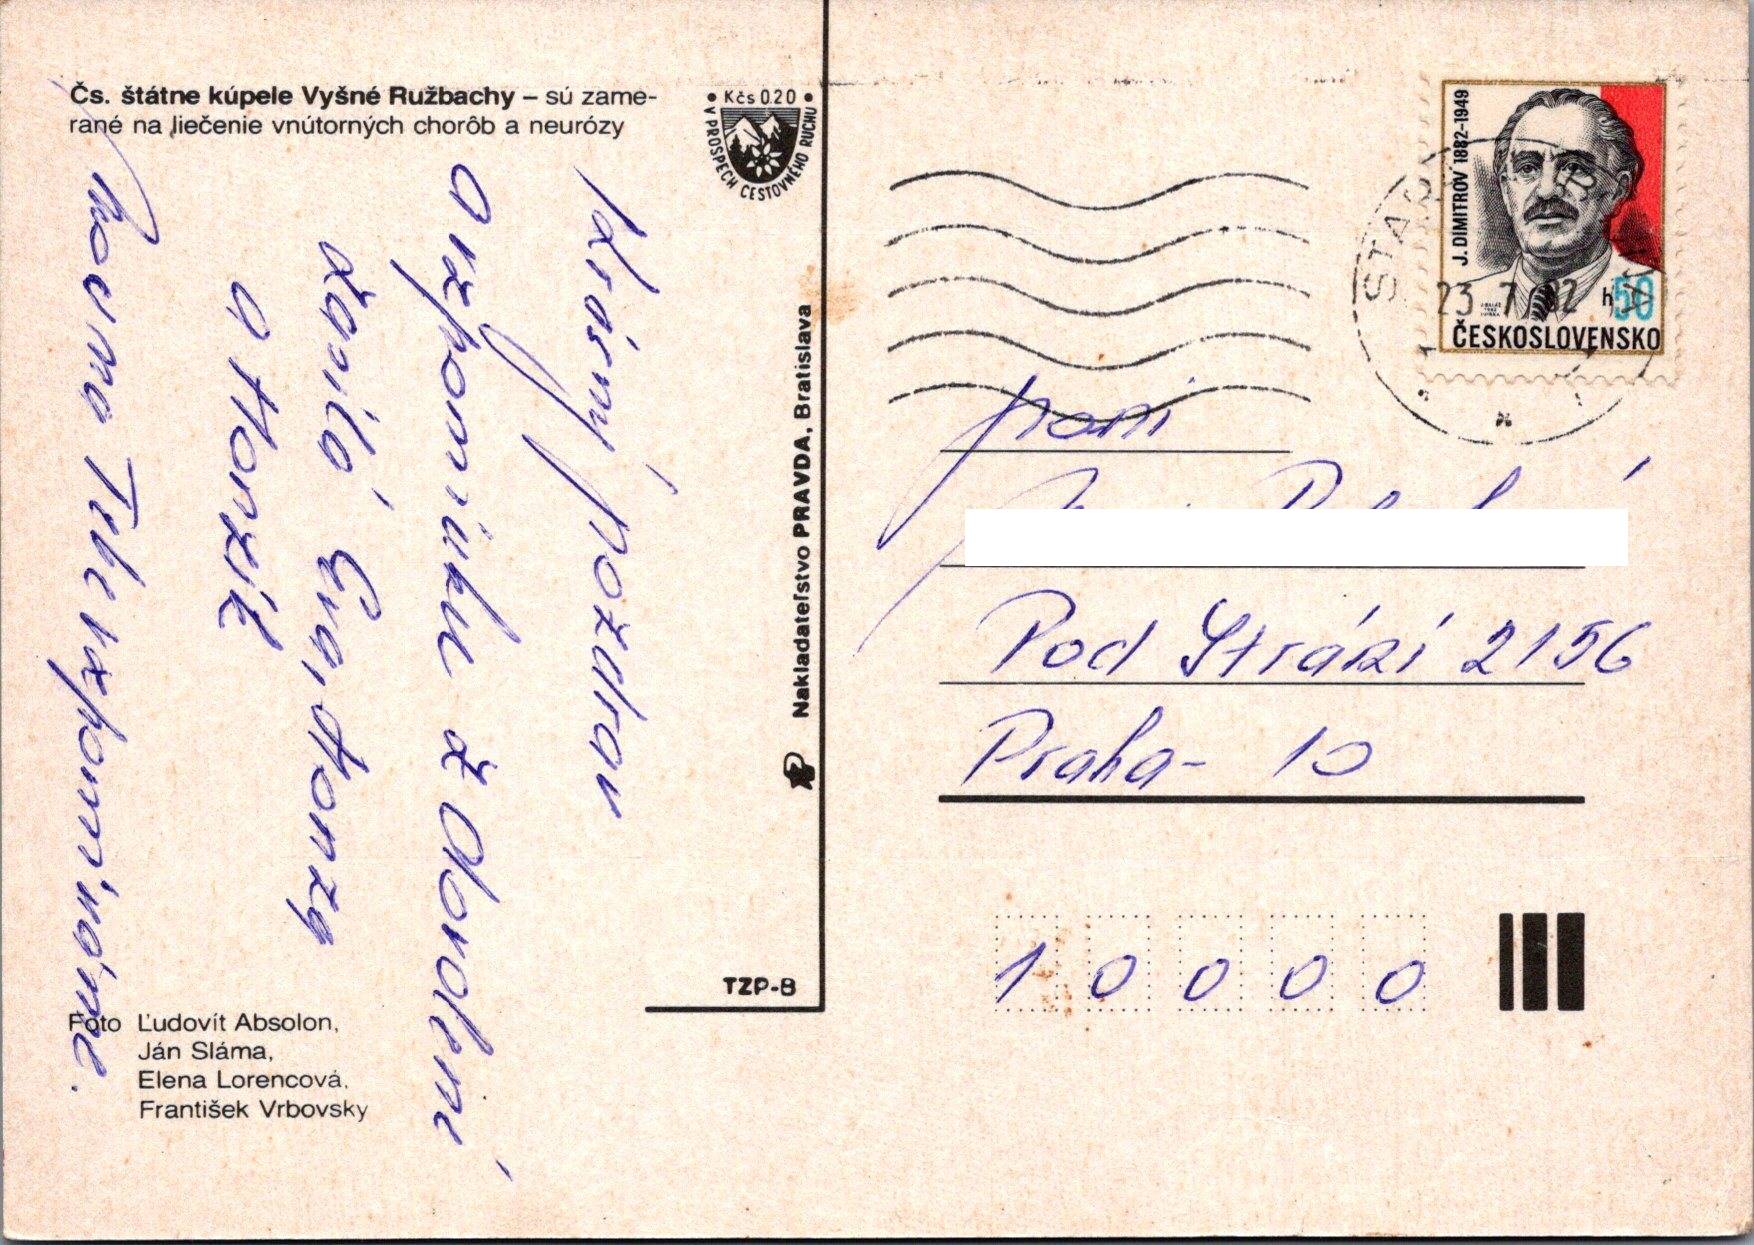 Čs. štátne kúpele Vyšné Ružbachy – sú zame-
rané na liečenie vnútorných chorôb a neurózy
Krásný pozdrav
a vzpomínku z dovolené
zasílá Eva, Honza
a Honzík
Moc na Tebe vzpomínáme.
Foto Ľudovít Absolon,
Ján Sláma,
Elena Lorencová,
František Vrbovsky
• Kčs 0.20 •
V PROSPECH CESTOVNÉHO RUCHU
Nakladateľstvo PRAVDA, Bratislava
TZP-8
J. DIMITROV 1882-1949
h 50
ČESKOSLOVENSKO
STARÁ
23. 7. 82
paní
Pod Strání 2156
Praha - 10
10000